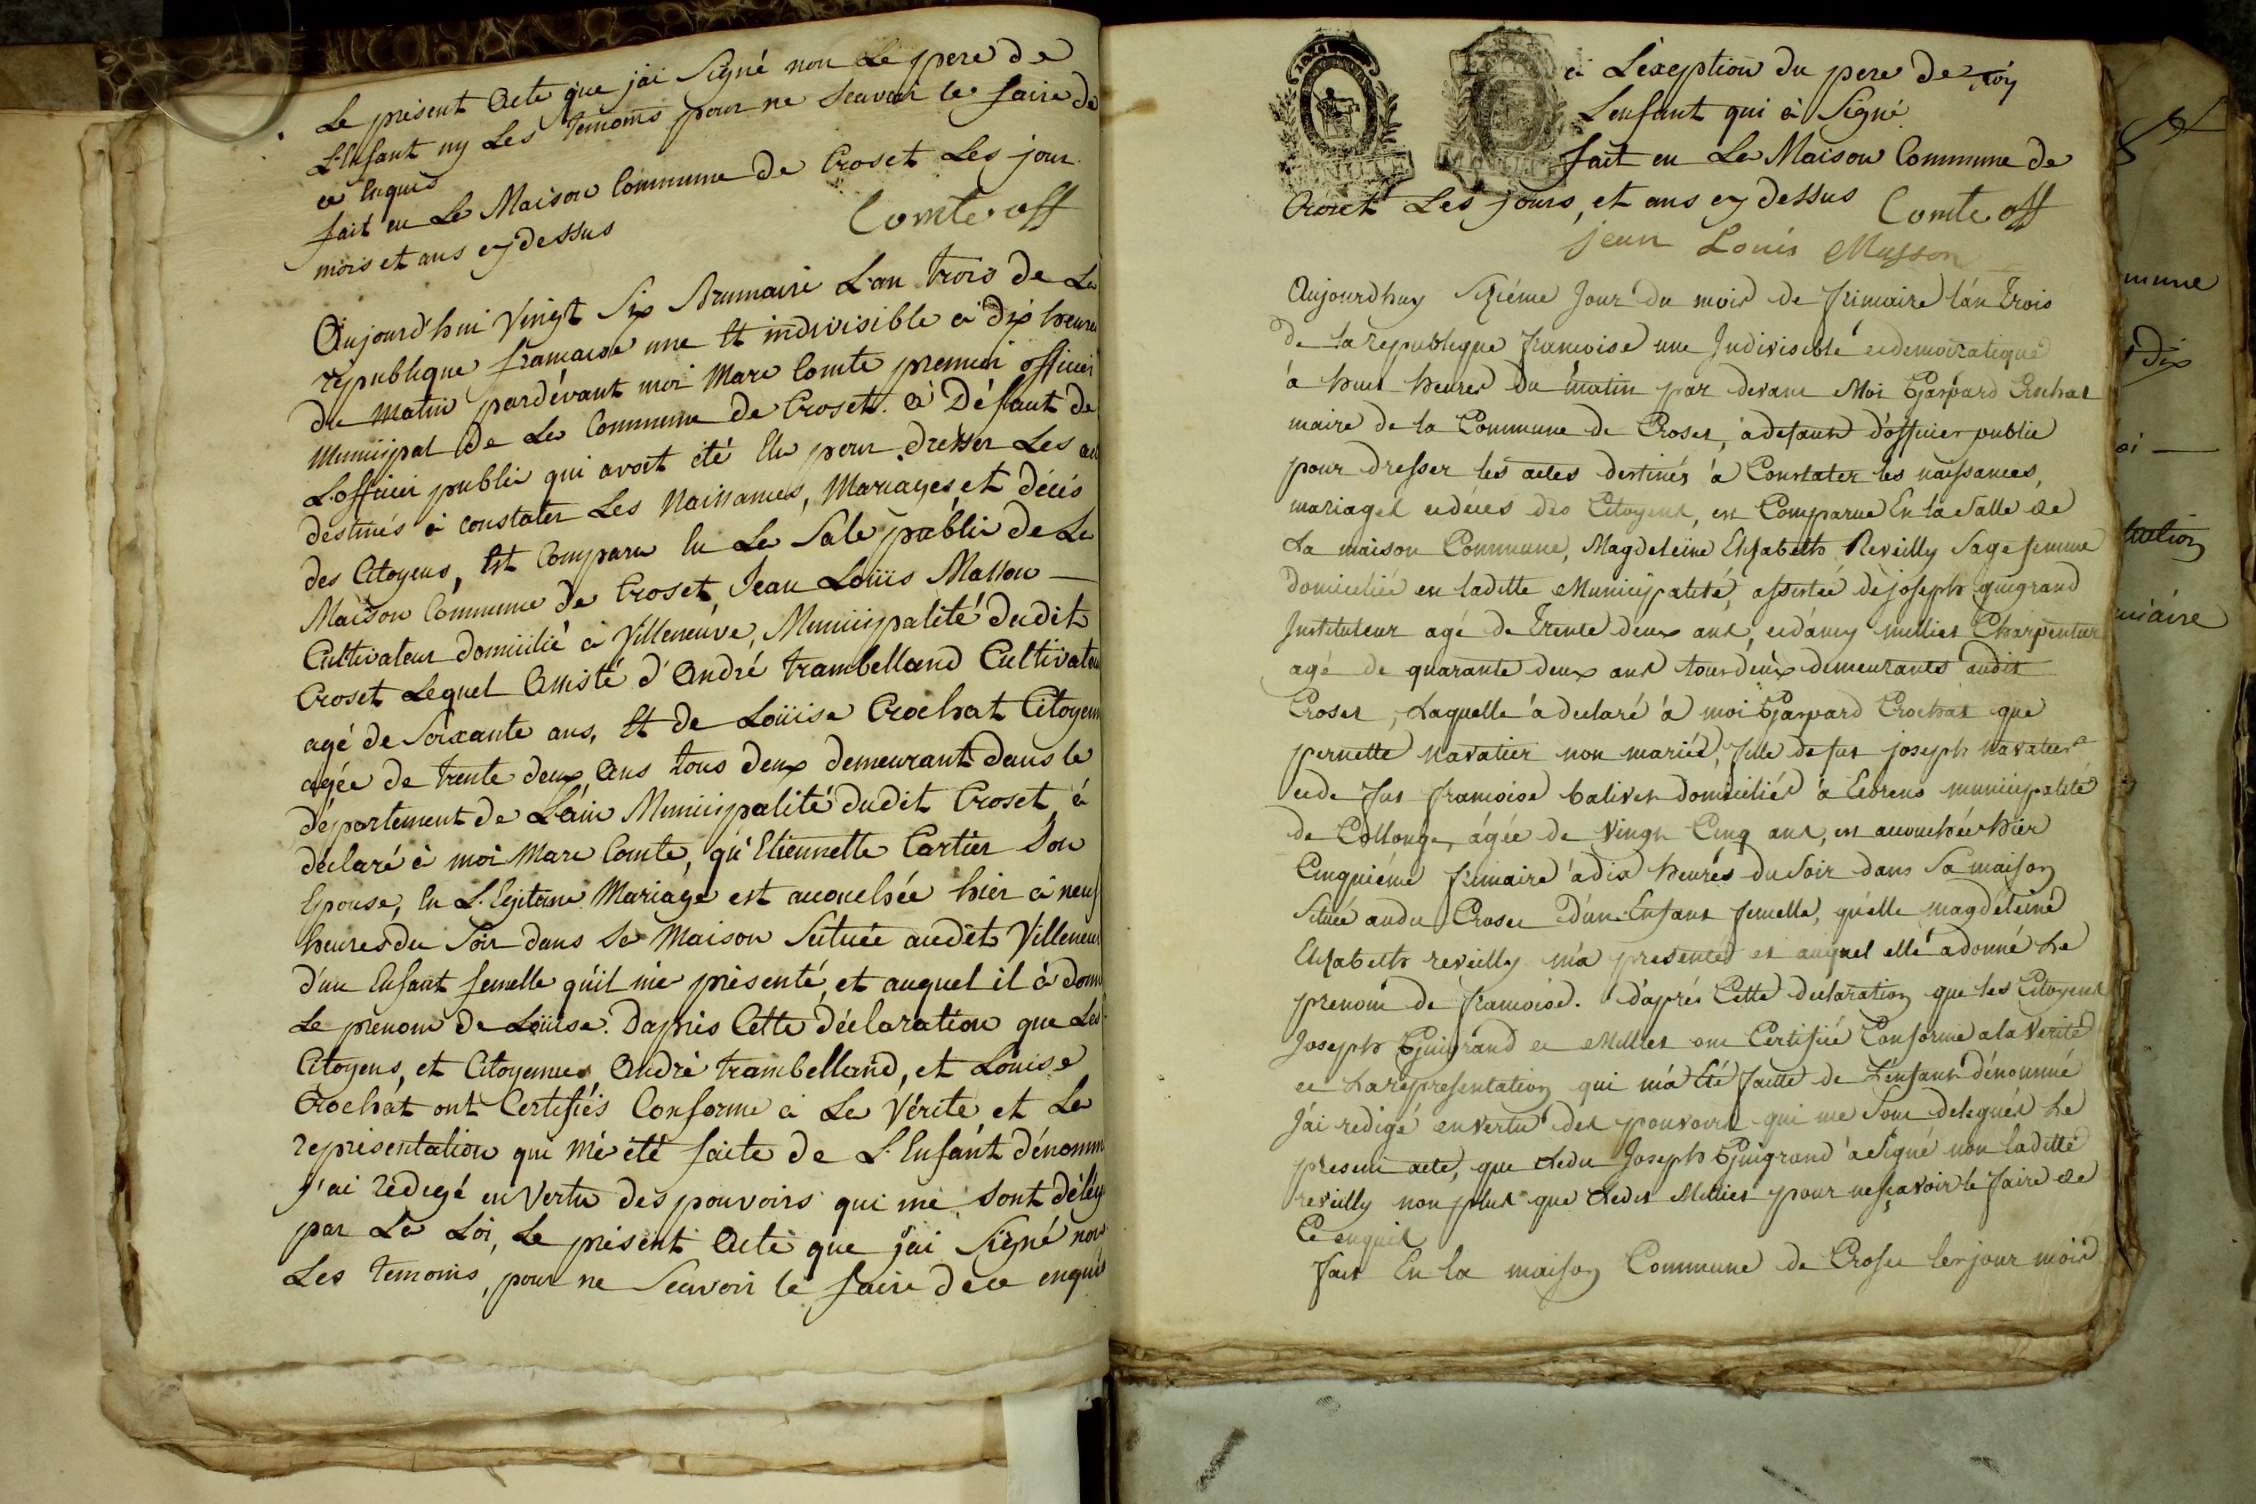 Le présent Acte que j'ai Signé non Le pere de
L'Enfant ny Les temoins pour ne Scavoir le faire de
ce Enquis
fait en La Maison Commune de Croset Les jour
mois et ans cy dessus
Comte off
Aujourd'hui Vingt Six Brumaire L'an trois de La
republique francaise une Et indivisible à dix heures
du matin pardévant moi Marc Comte premier officier
Municipal de La Commune de Croset. à Défaut de
L'officier public qui avoit été Elu pour dresser Les ac
destinés à constater Les Naissances, Mariages, et décés
des Citoyens, Est Comparu En La Sale public de La
Maison Commune de Croset, Jean Loüis Masson
Cultivateur domicilié à Villeneuve, Municipalité dudit
Croset Lequel Assisté d'André trambelland Cultivateur
agé de Soixante ans, Et de Loüise Crochat Citoyenn
agée de trente deux Ans tous deux demeurant dans le
département de L'ain Municipalité dudit Croset, à
déclaré à moi Marc Comte, qu'Etiennette Cartier Son
Epouse, En L'Egitime Mariage est accouchée hier à neuf
heures du Soir dans Sa Maison Scituée audit Villeneuv
d'un Enfant femelle qu'il m'a présenté, et auquel il à donn
Le prenom de Loüise. Daprès Cette déclaration que Les
Citoyens, et Citoyennes André trambelland, et Louise
Crochat ont Certifiés Conforme à La Vérité et La
représentation qui m'à été faite de L'Enfant dénomm
j'ai rédigé en Vertu des pouvoirs qui me Sont délég
par La Loi, Le présent Acte que j'ai Signé non
Les temoins, pour ne Scavoir le faire de ce enquis
à L'exception du pere de
L'enfant qui à Signé
fait en La Maison Commune de
Croset Les jours, et ans cy dessus
Comte off
jean Louis Masson
Aujourdhuy Sixiéme Jour du mois de frimaire l'an Trois
de la republique francoise une Indivisible et democratique
à huit heures du matin par devant Moi Gaspard Crochat
maire de la Commune de Croset, à defaut d'officier public
pour dresser les actes destinés à Constater les naissances,
mariages et décés des Citoyens, est Comparue En la Salle de
La maison Commune, Magdeleine Elisabeth Reveilly Sage femme
domiciliée en ladite Municipalité, assistée de joseph guigrand
Instituteur agé de Trente deux ans, et d'amy millier Charpentier
agé de quarante deux ans tous deux demeurants audit
Croset, Laquelle à declaré à moi Gaspard Crochat que
pernette navatier non mariée, fille de fut joseph navatier
et de fut francoise baliver domiciliée à Ecorens municipalité
de Collonge, agée de Vingt Cinq ans, est accouchée hier
Cinquiéme frimaire à dix heures du Soir dans Sa maison
Située audit Croset d'un Enfant femelle, qu'elle magdeleine
Elisabeth reveilly m'a presentée et auquel elle à donné Le
prenom de francoise. d'aprés Cette declaration que les Citoyens
Joseph Guigrand et Millier ont Certifiée Conforme a la Verité
et La representation qui m'a Eté faitte de L'enfant dénommé
J'ai redigé en vertu des pouvoirs qui me Sont delegués Le
present acte, que Ledit Joseph Guigrand à Signé non ladite
reveilly non plus que Ledit Millier pour ne sçavoir le faire de
Ce enquis
fait En la maison Commune de Croset les jour mois
mune
dix
oi